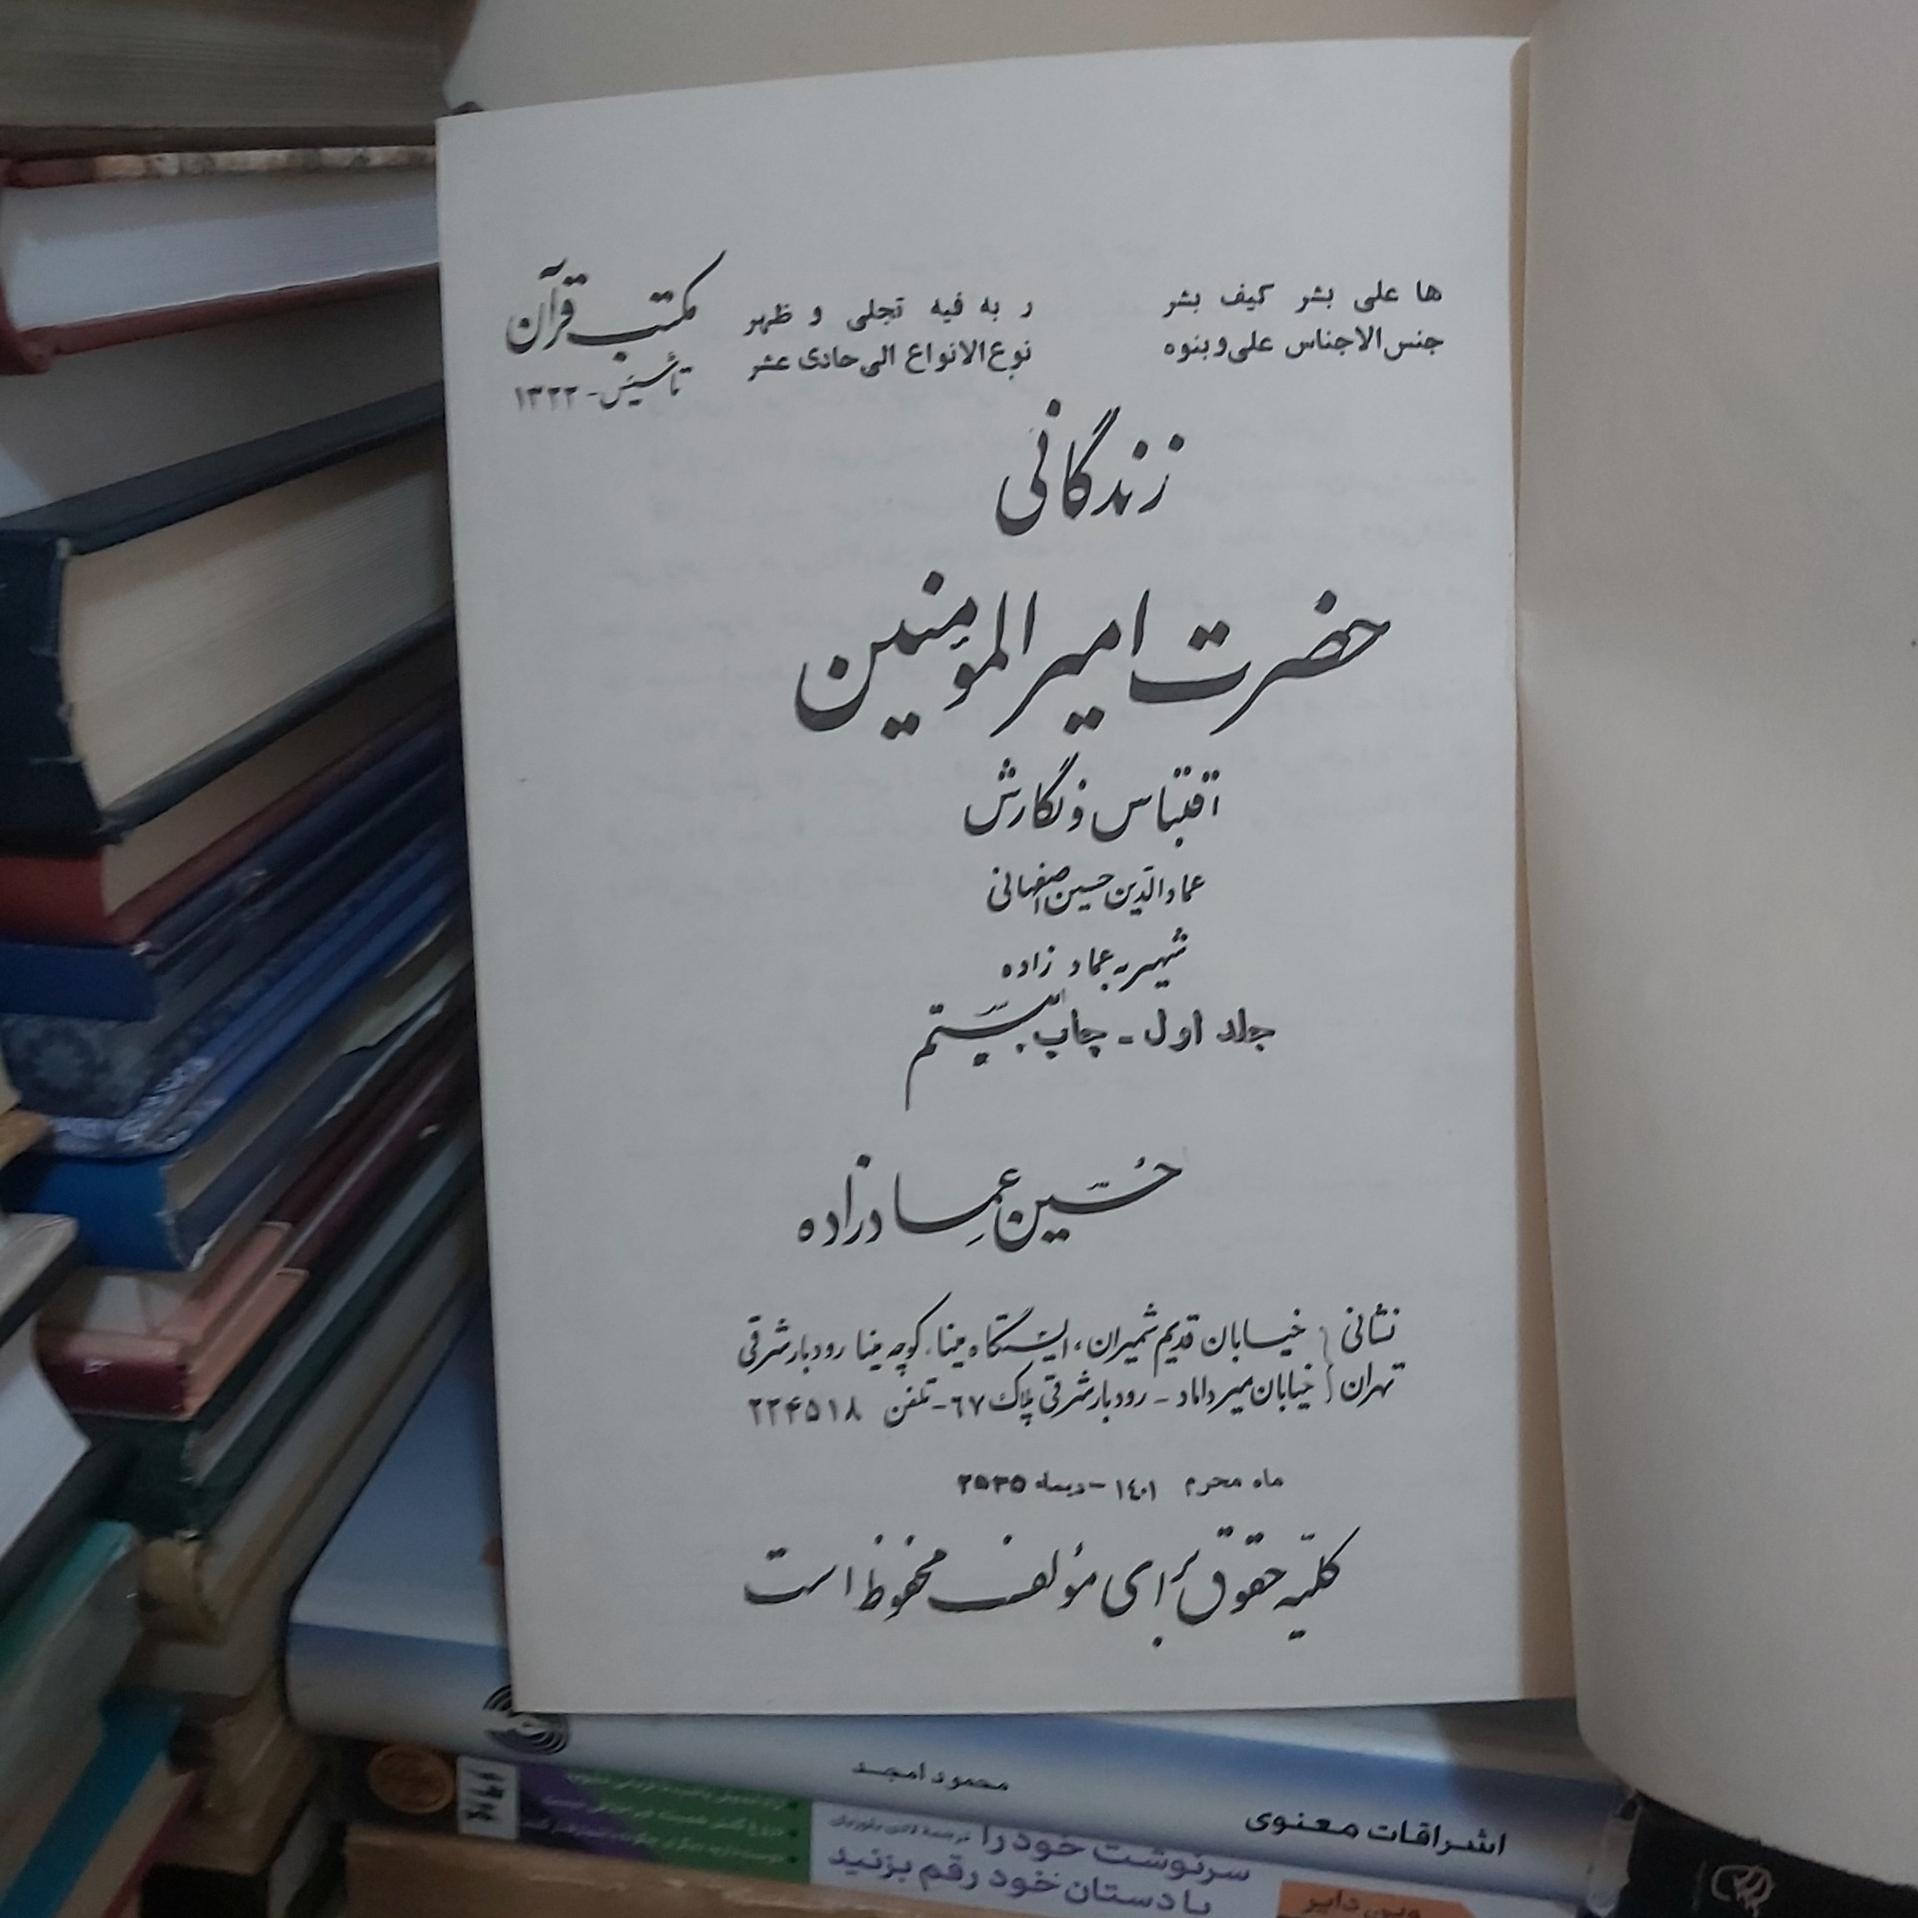 ها علی بشر کیف بشر
ر به فیه تجلی و ظهر
جنس‌الاجناس علی و بنوه
نوع‌الانواع الی حادی عشر
مکتب قرآن
تأسیس - ۱۳۲۲
زندگانی
حضرت امیرالمؤمنین
اقتباس و نگارش
عمادالدین حسین اصفهانی
شهیر به عمادزاده
جلد اول - چاپ بیستم
حسین عمادزاده
نشانی خیابان قدیم شمیران، ایستگاه مینا، کوچه مینا رودبار شرقی
تهران خیابان میرداماد - رودبار شرقی پلاک ۶۷ - تلفن ۲۲۴۵۱۸
ماه محرم ۱٤۰۱ - دیماه ۲۵۳۵
کلیّه حقوق برای مؤلف محفوظ است
محمود امجد
اشراقات معنوی
سرنوشت خود را
با دستان خود رقم بزنید
وین دایر